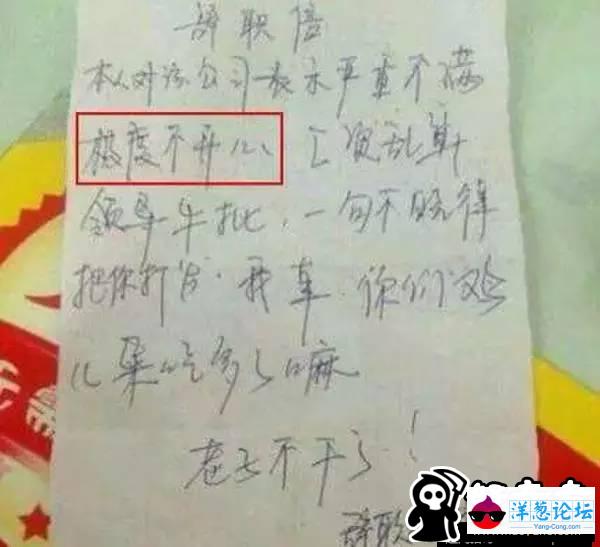 辞职信
本人对该公司表示严重不满
极度不开心、工资乱算
领导牛批，一句不晓得
把你打发．我靠．你们鸡
儿果吃多了嘛
老子不干了！
辞职
洋葱论坛
Yang-Cong.com